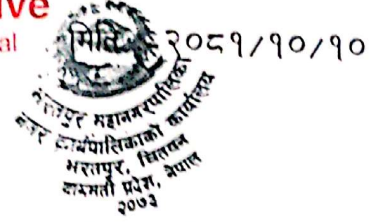 ve
al
मिति: २०८१/१०/१०
भरतपुर महानगरपालिका
नगर कार्यपालिकाको कार्यालय
भरतपुर, चितवन
बागमती प्रदेश, नेपाल
२०७३